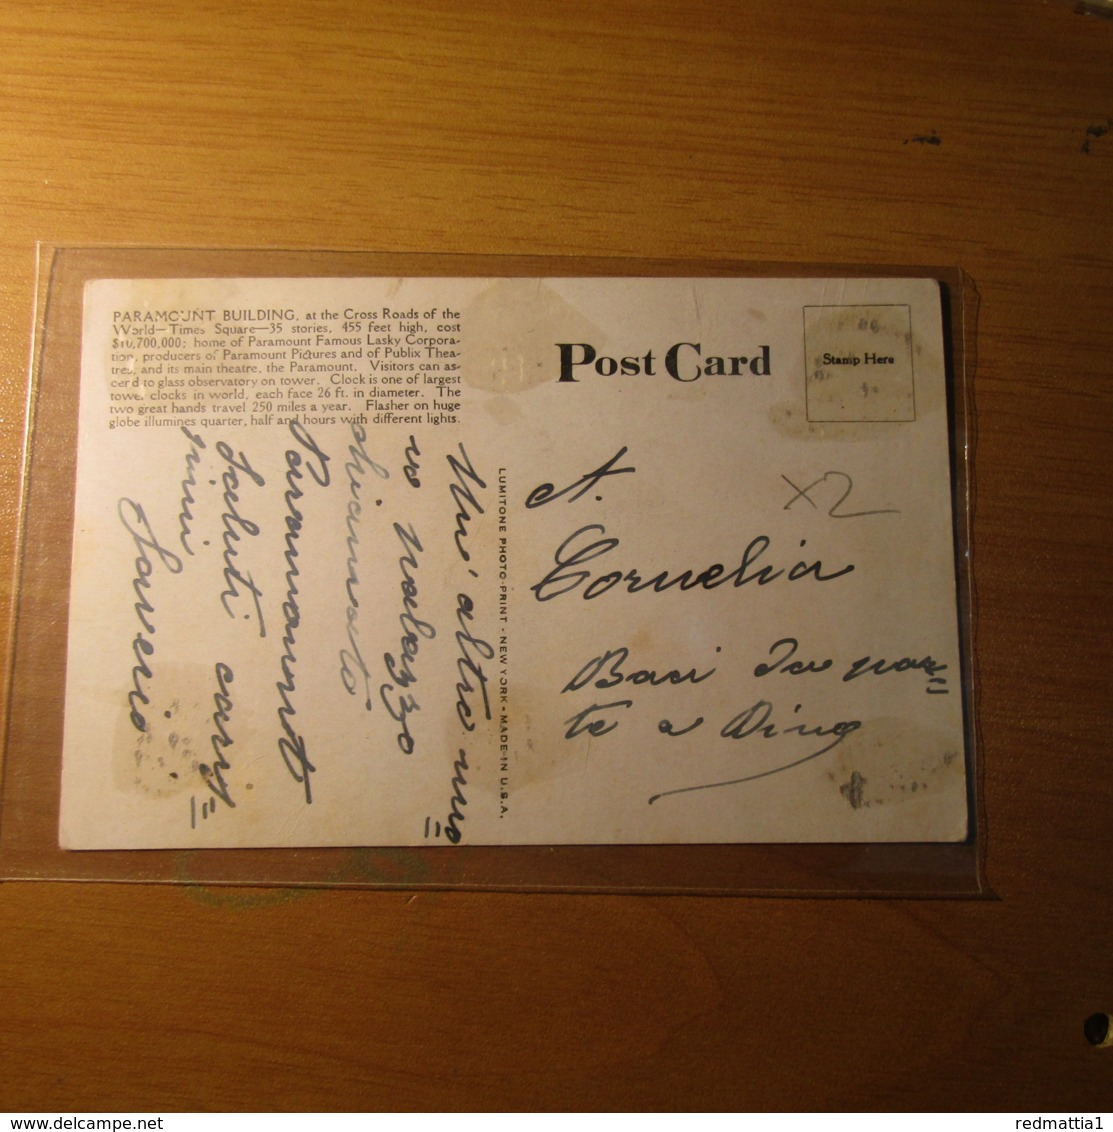 PARAMOUNT BUILDING, at the Cross Roads of the
World—Times Square—35 stories, 455 feet high, cost
$10,700,000; home of Paramount Famous Lasky Corpora-
tion, producers of Paramount Pictures and of Publix Thea-
tres, and its main theatre, the Paramount. Visitors can as-
cend to glass observatory on tower. Clock is one of largest
tower clocks in world, each face 26 ft. in diameter. The
two great hands travel 250 miles a year. Flasher on huge
globe illumines quarter, half and hours with different lights.
Un'altro nuo=
vo palazzo
chiamato
Paramount
Saluti caris=
simi
Saverio
LUMITONE PHOTO-PRINT - NEW YORK - MADE-IN U.S.A.
Post Card
Stamp Here
A.
Cornelia
X2
Baci da par=
te a Dino
delcampe.net
redmattia1